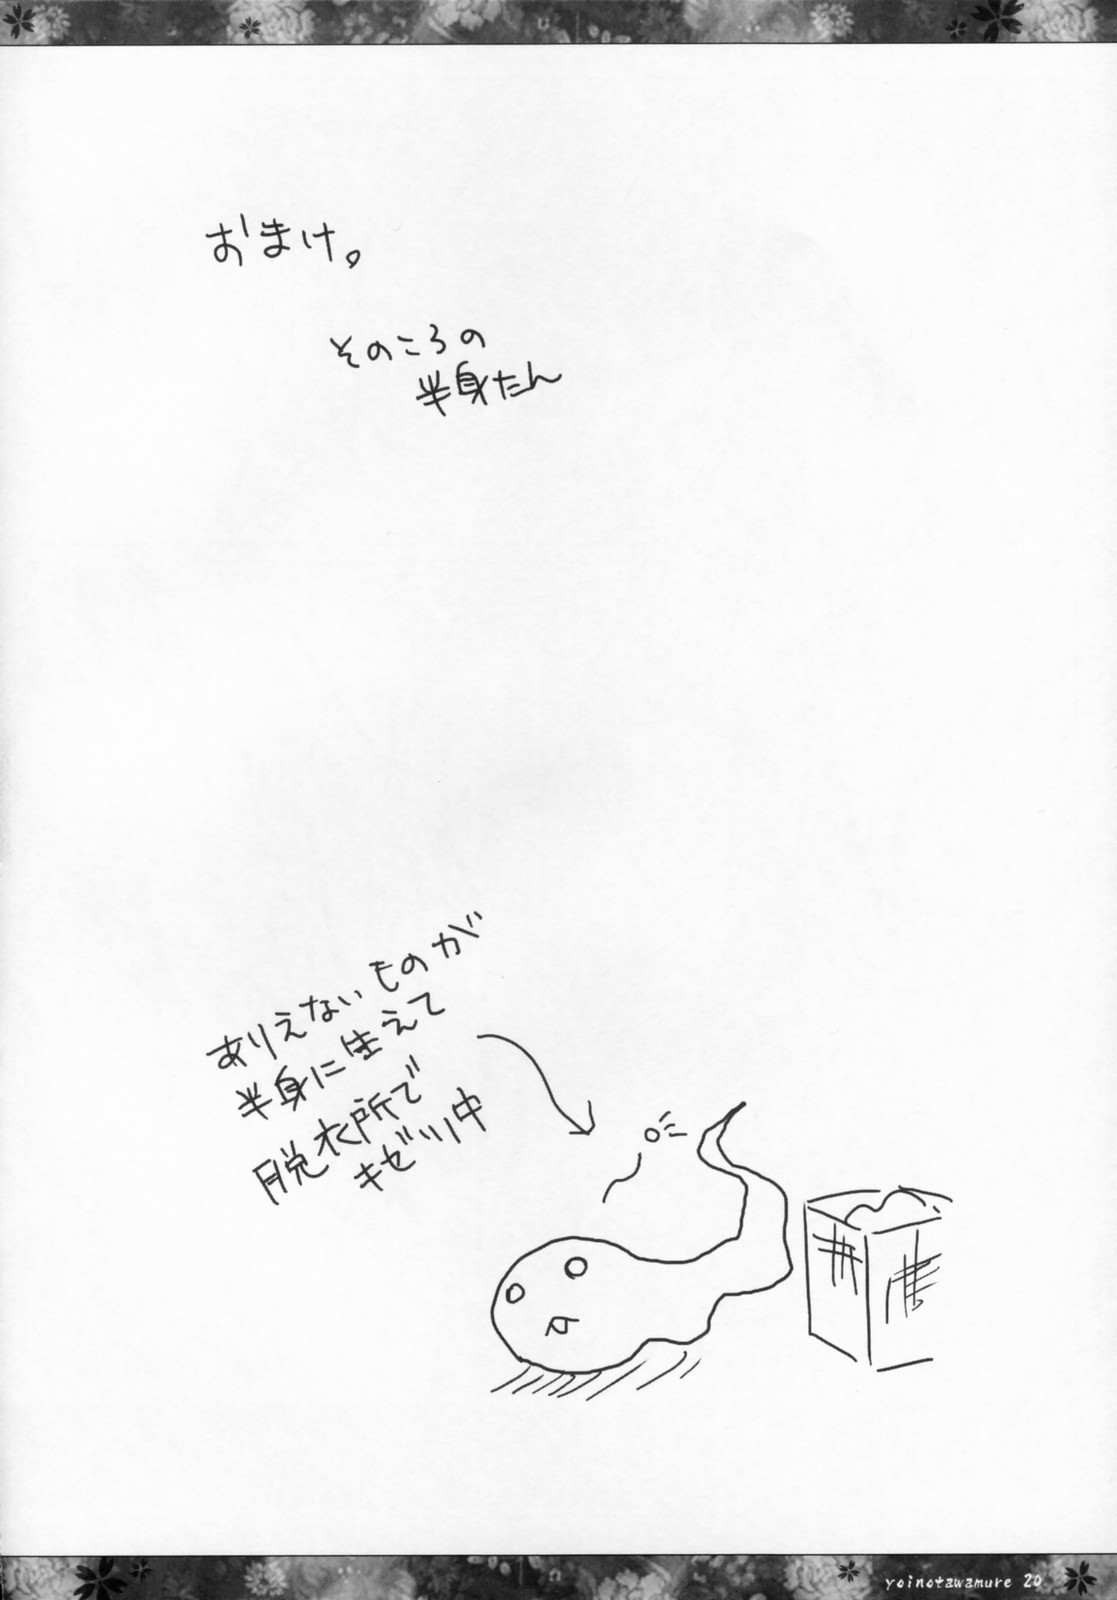 おまけ。
そのころの
半身たん
ありえないものが
半身に生えて
脱衣所で
キゼツ中
yoinotawamure 20